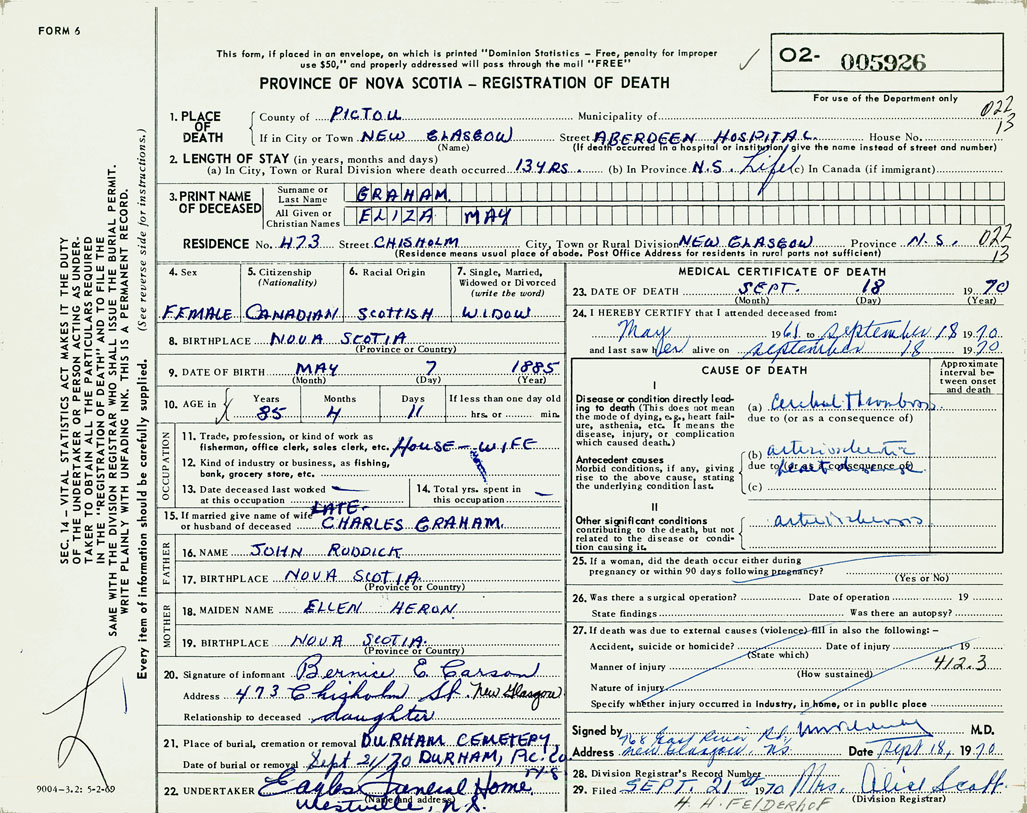 FORM 6
This form, if placed in an envelope, on which is printed "Dominion Statistics – Free, penalty for improper
use $50," and properly addressed will pass through the mail "FREE"
PROVINCE OF NOVA SCOTIA – REGISTRATION OF DEATH
O2- 005926
For use of the Department only
022
13
1. PLACE OF DEATH
County of PICTOU Municipality of
If in City or Town NEW GLASGOW Street ABERDEEN HOSPITAL House No.
(Name) (If death occurred in a hospital or institution, give the name instead of street and number)
2. LENGTH OF STAY (in years, months and days)
(a) In City, Town or Rural Division where death occurred 13 YRS. (b) In Province N.S. Life (c) In Canada (if immigrant)
3. PRINT NAME OF DECEASED
Surname or Last Name GRAHAM
All Given or Christian Names ELIZA MAY
RESIDENCE No. 473 Street CHISHOLM City, Town or Rural Division NEW GLASGOW Province N.S.
022
13
(Residence means usual place of abode. Post Office Address for residents in rural parts not sufficient)
4. Sex
FEMALE
5. Citizenship
(Nationality)
CANADIAN
6. Racial Origin
SCOTTISH
7. Single, Married,
Widowed or Divorced
(write the word)
WIDOW
8. BIRTHPLACE NOVA SCOTIA
(Province or Country)
9. DATE OF BIRTH MAY 7 1885
(Month) (Day) (Year)
10. AGE in Years Months Days If less than one day old
85 4 11 hrs. or min.
OCCUPATION
11. Trade, profession, or kind of work as
fisherman, office clerk, sales clerk, etc. HOUSE-WIFE
12. Kind of industry or business, as fishing,
bank, grocery store, etc.
13. Date deceased last worked
at this occupation
14. Total yrs. spent in
this occupation
15. If married give name of wife
or husband of deceased LATE- CHARLES GRAHAM
FATHER
16. NAME JOHN RODDICK
17. BIRTHPLACE NOVA SCOTIA
(Province or Country)
MOTHER
18. MAIDEN NAME ELLEN HERON
19. BIRTHPLACE NOVA SCOTIA
(Province or Country)
20. Signature of informant Bernice E. Carson
Address 473 Chisholm St. New Glasgow
Relationship to deceased daughter
21. Place of burial, cremation or removal DURHAM CEMETERY
Date of burial or removal Sept 21/70 DURHAM, Pic. Co N.S.
22. UNDERTAKER Eagles Funeral Home
(Name and address)
Westville, N.S.
MEDICAL CERTIFICATE OF DEATH
23. DATE OF DEATH SEPT. 18 1970
(Month) (Day) (Year)
24. I HEREBY CERTIFY that I attended deceased from:
May 1961 to September 18 1970
and last saw her alive on September 18 1970
CAUSE OF DEATH
Approximate
interval be-
tween onset
and death
I
Disease or condition directly lead-
ing to death (This does not mean
the mode of dying, e.g., heart fail-
ure, asthenia, etc. It means the
disease, injury, or complication
which caused death.)
(a) Cerebral Thrombosis
due to (or as a consequence of)
Antecedent causes
Morbid conditions, if any, giving
rise to the above cause, stating
the underlying condition last.
(b) arteriosclerotic
due to (or as a consequence of)
heart disease
(c)
II
Other significant conditions
contributing to the death, but not
related to the disease or condi-
tion causing it.
arteriosclerosis
25. If a woman, did the death occur either during
pregnancy or within 90 days following pregnancy?
(Yes or No)
26. Was there a surgical operation? Date of operation 19
State findings Was there an autopsy?
27. If death was due to external causes (violence) fill in also the following:–
Accident, suicide or homicide? Date of injury 19
(State which)
412.3
Manner of injury
(How sustained)
Nature of injury
Specify whether injury occurred in industry, in home, or in public place
Signed by M.D.
Address 768 East River Rd., New Glasgow, N.S. Date Sept 18, 1970
28. Division Registrar's Record Number
29. Filed SEPT. 21st 1970 Mrs. Alice Scott
(Division Registrar)
H. H. FELDERHOF
SEC. 14 – VITAL STATISTICS ACT MAKES IT THE DUTY
OF THE UNDERTAKER OR PERSON ACTING AS UNDER-
TAKER TO OBTAIN ALL THE PARTICULARS REQUIRED
IN THE "REGISTRATION OF DEATH" AND TO FILE THE
SAME WITH THE DIVISION REGISTRAR WHO SHALL ISSUE THE BURIAL PERMIT.
WRITE PLAINLY WITH UNFADING INK. THIS IS A PERMANENT RECORD.
Every item of information should be carefully supplied. (See reverse side for instructions.)
9004–3.2: 5-2-69